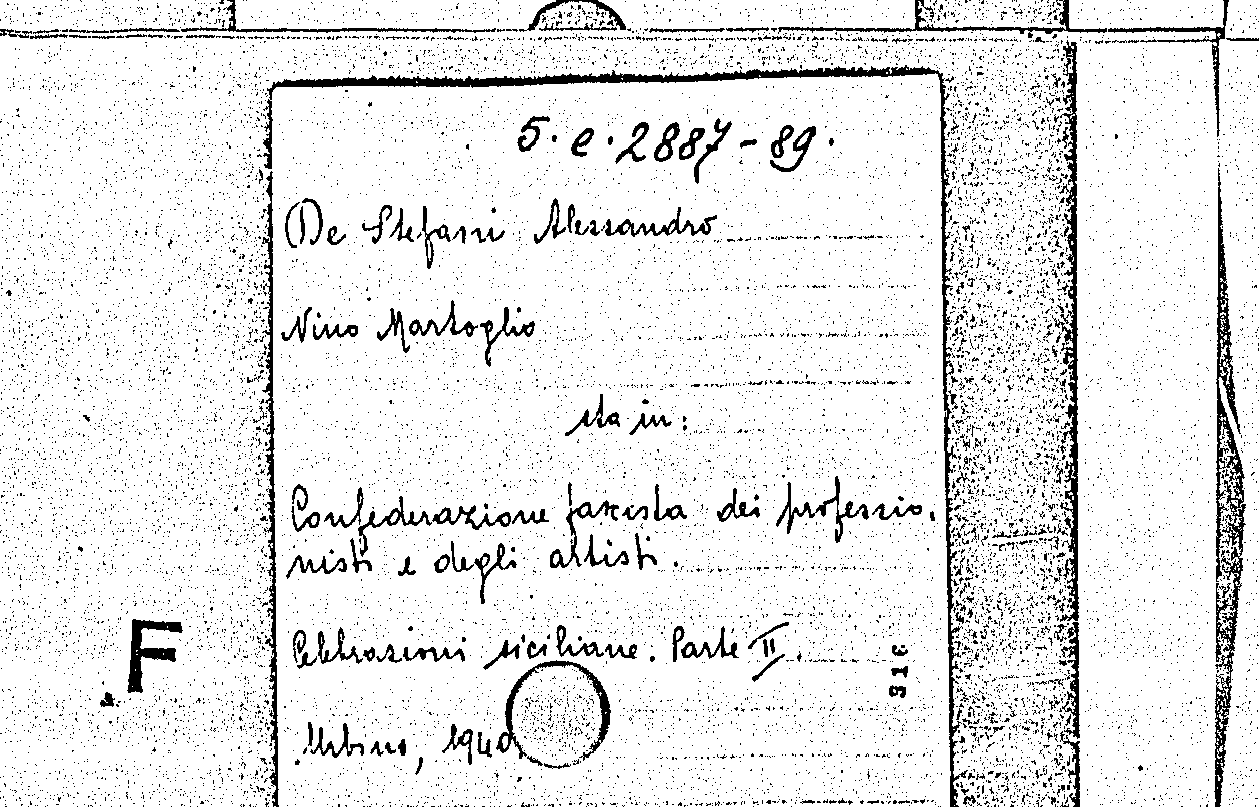 5. e. 2887 - 89.
De Stefani Alessandro
Nino Martoglio
sta in:
Confederazione fascista dei professio.
nisti e degli artisti.
Celebrazioni siciliane. Parte II.
Urbino, 1940
F
316